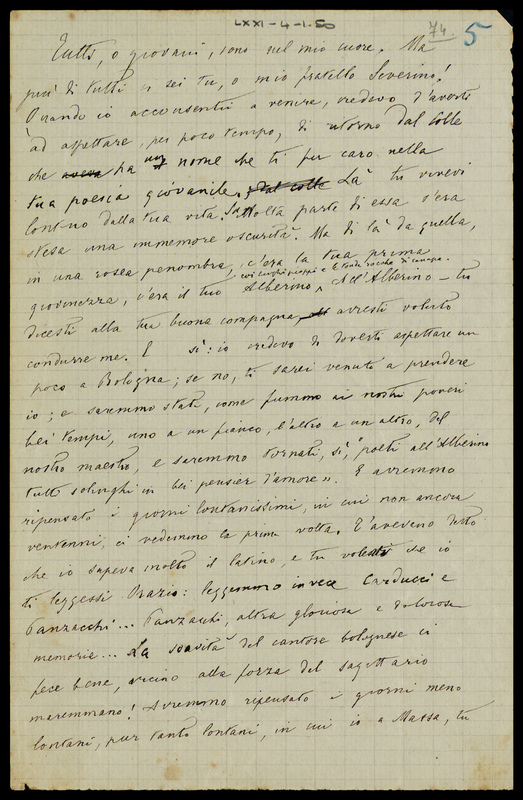 LXXI-4-1.50
74.
5
Tutti, o giovani, sono nel mio cuore. Ma
più di tutti ci sei tu, o mio fratello Severino!
Quando io acconsentii a venire, credevo d'averti
ad aspettare, per poco tempo, di ritorno dal Colle
che aveva ha un nome che ti fu caro nella
tua poesia giovanile, dal colle Là tu vivevi
lontano dalla tua vita. Su molta parte di essa s'era
stesa una immemore oscurità. Ma di là da quella,
in una rosea penombra, c'era la tua prima
giovinezza, c'era il tuo Alberino, All'Alberino - tu
coi lunghi pioppi e le tonde rocche di canapa.
dicesti alla tua buona compagna, avresti voluto
condurre me. E sì: io credevo di doverti aspettare un
poco a Bologna; se no, ti sarei venuto a prendere
io; e saremmo stati, come fummo ai nostri poveri
bei tempi, uno a un fianco, l'altro a un altro, del
nostro maestro, e saremmo tornati, sì, "poeti all'Alberino
tutti solinghi in bei pensier d'amore". E avremmo
ripensato i giorni lontanissimi, in cui non ancora
ventenni, ci vedemmo la prima volta. T'avevano detto
che io sapeva molto il latino, e tu volesti che io
ti leggessi Orazio: leggemmo invece Carducci e
Panzacchi... Panzacchi, altra gloriosa e dolorosa
memoria... La soavità del cantore bolognese ci
fece bene, vicino alla forza del sagittario
maremmano! Avremmo ripensato i giorni meno
lontani, pur tanto lontani, in cui io a Massa, tu